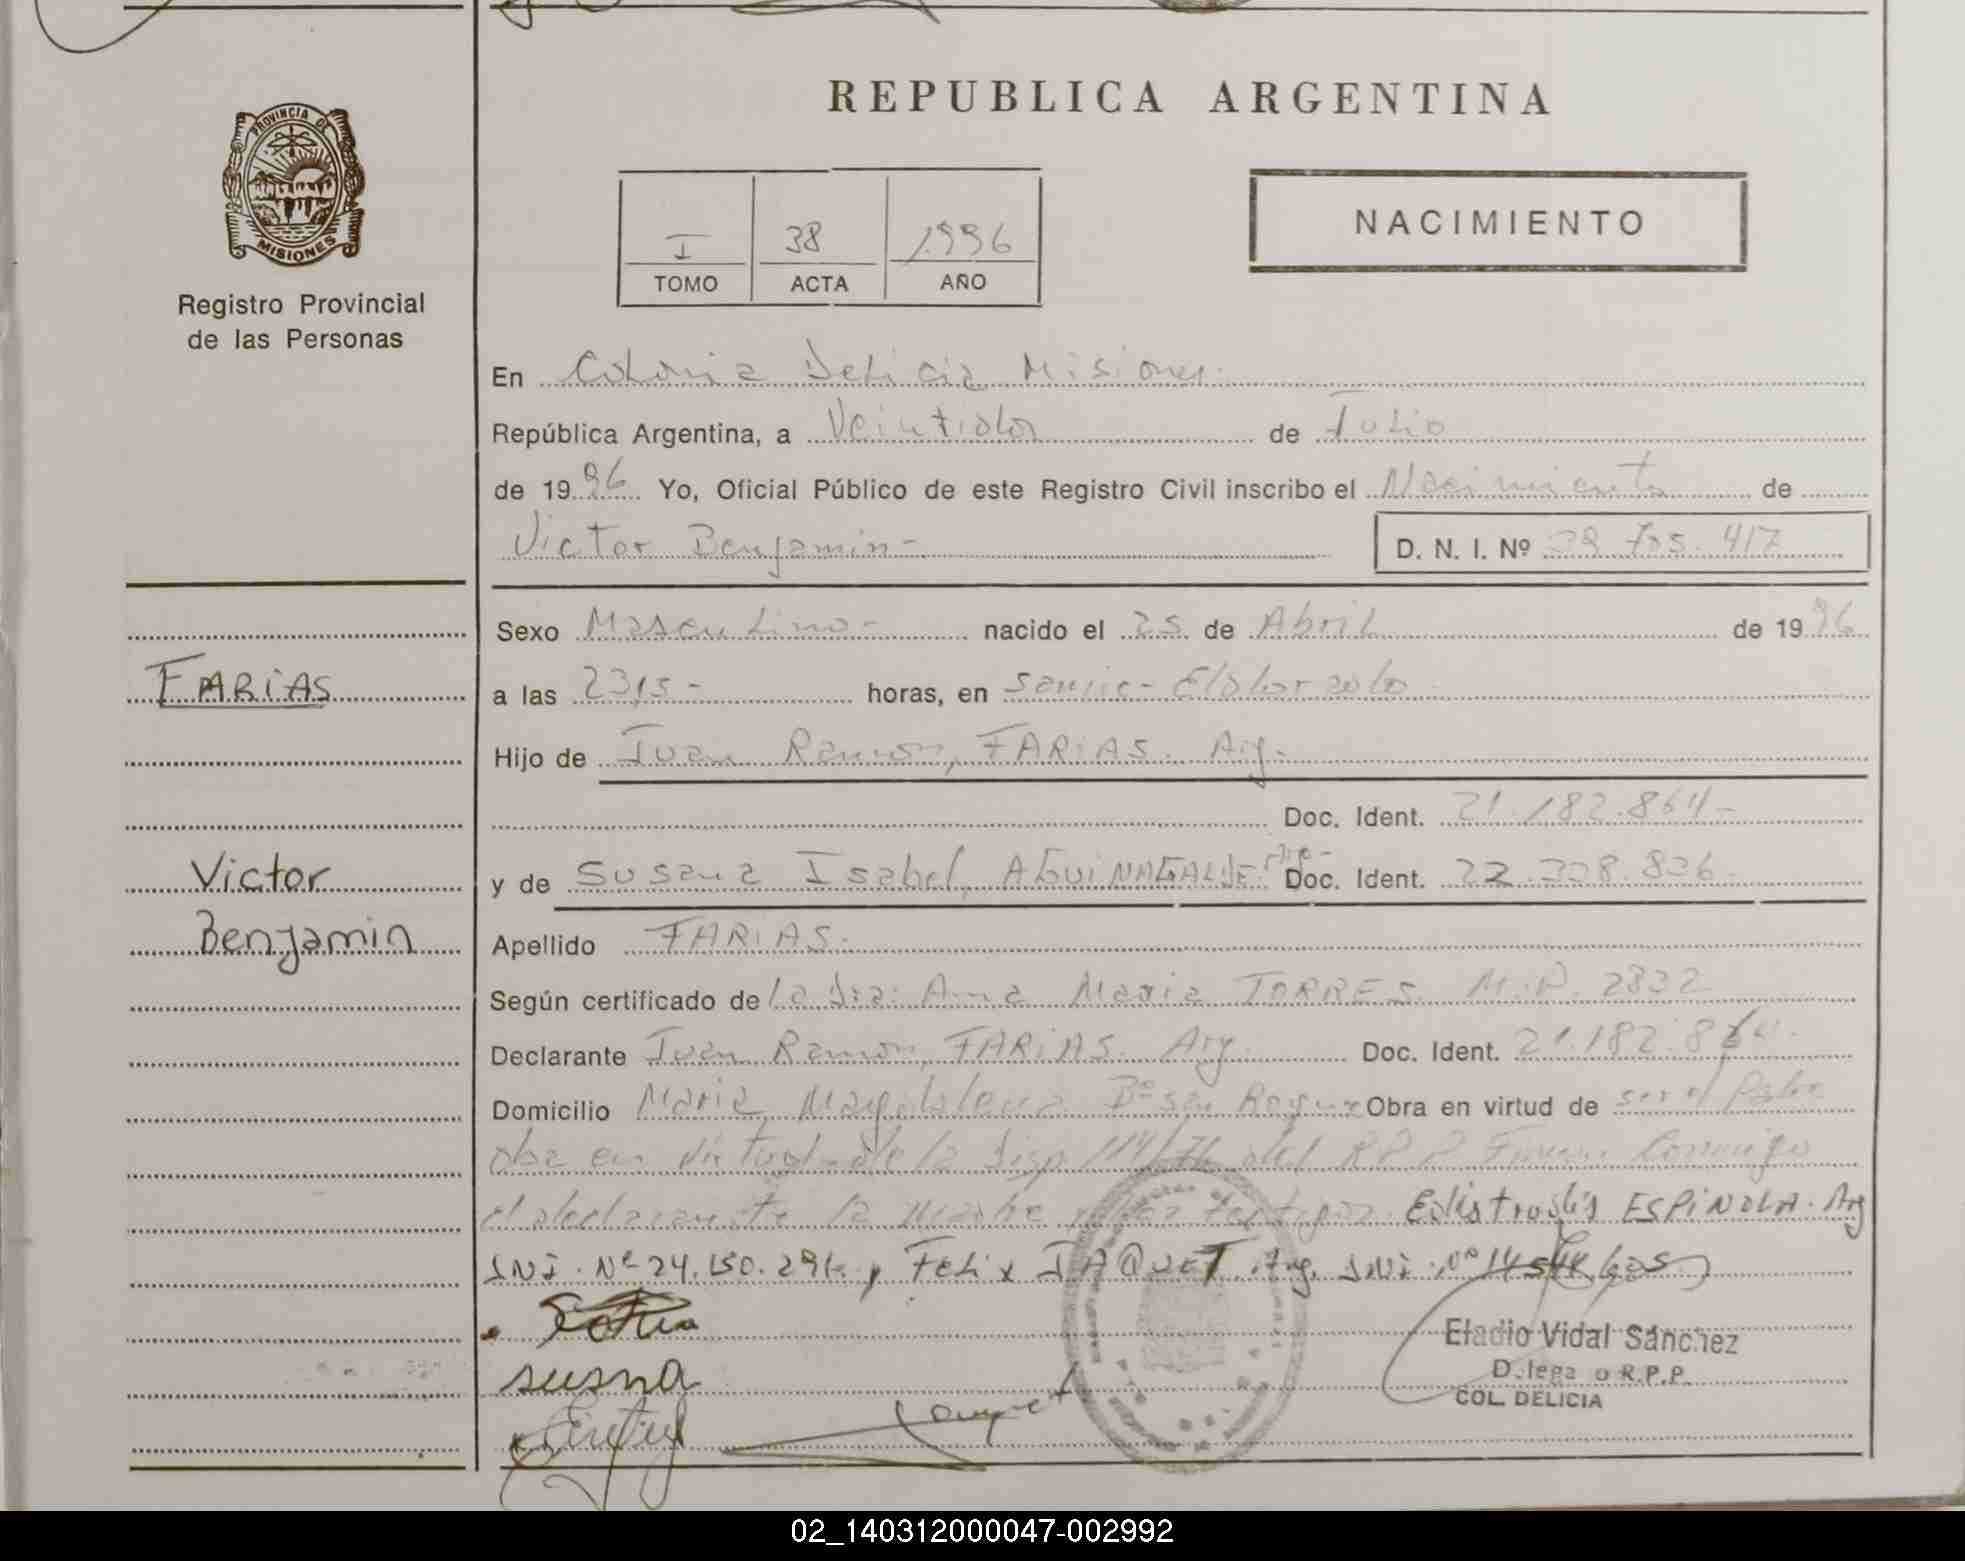 REPUBLICA ARGENTINA
PROVINCIA DE
MISIONES
Registro Provincial
de las Personas
I 38 1996
TOMO ACTA AÑO
NACIMIENTO
En Colonia Delicia Misiones
República Argentina, a Veintidos de Julio
de 1996 Yo, Oficial Público de este Registro Civil inscribo el Nacimiento de
Victor Benjamin-
D. N. I. Nº 705.417
Sexo Masculino- nacido el 25 de Abril de 1996
FARIAS
a las 2315- horas, en Eldorado
Hijo de Juan Ramon, FARIAS. Arg.
Doc. Ident. 21.182.864-
Victor
y de Susana Isabel, AGUINAGALDE. Doc. Ident. 22.328.836
Benjamin
Apellido FARIAS.
Según certificado de la Dra: Ana Maria TORRES. M.P. 2832
Declarante Juan Ramon, FARIAS. Arg. Doc. Ident. 21.182.864.
Domicilio Maria Magdalena Bº San Roque Obra en virtud de ser el Padre
obra en virtud de la Disp 114/76 del RPP Firman Conmigo
el declarante la madre testigos ESPINOLA. Arg
DNI. Nº 24.150.296, Felix JAQUET Arg. DNI. Nº 14
susna
Eladio Vidal Sánchez
Delegado R.P.P.
COL. DELICIA
02_140312000047-002992